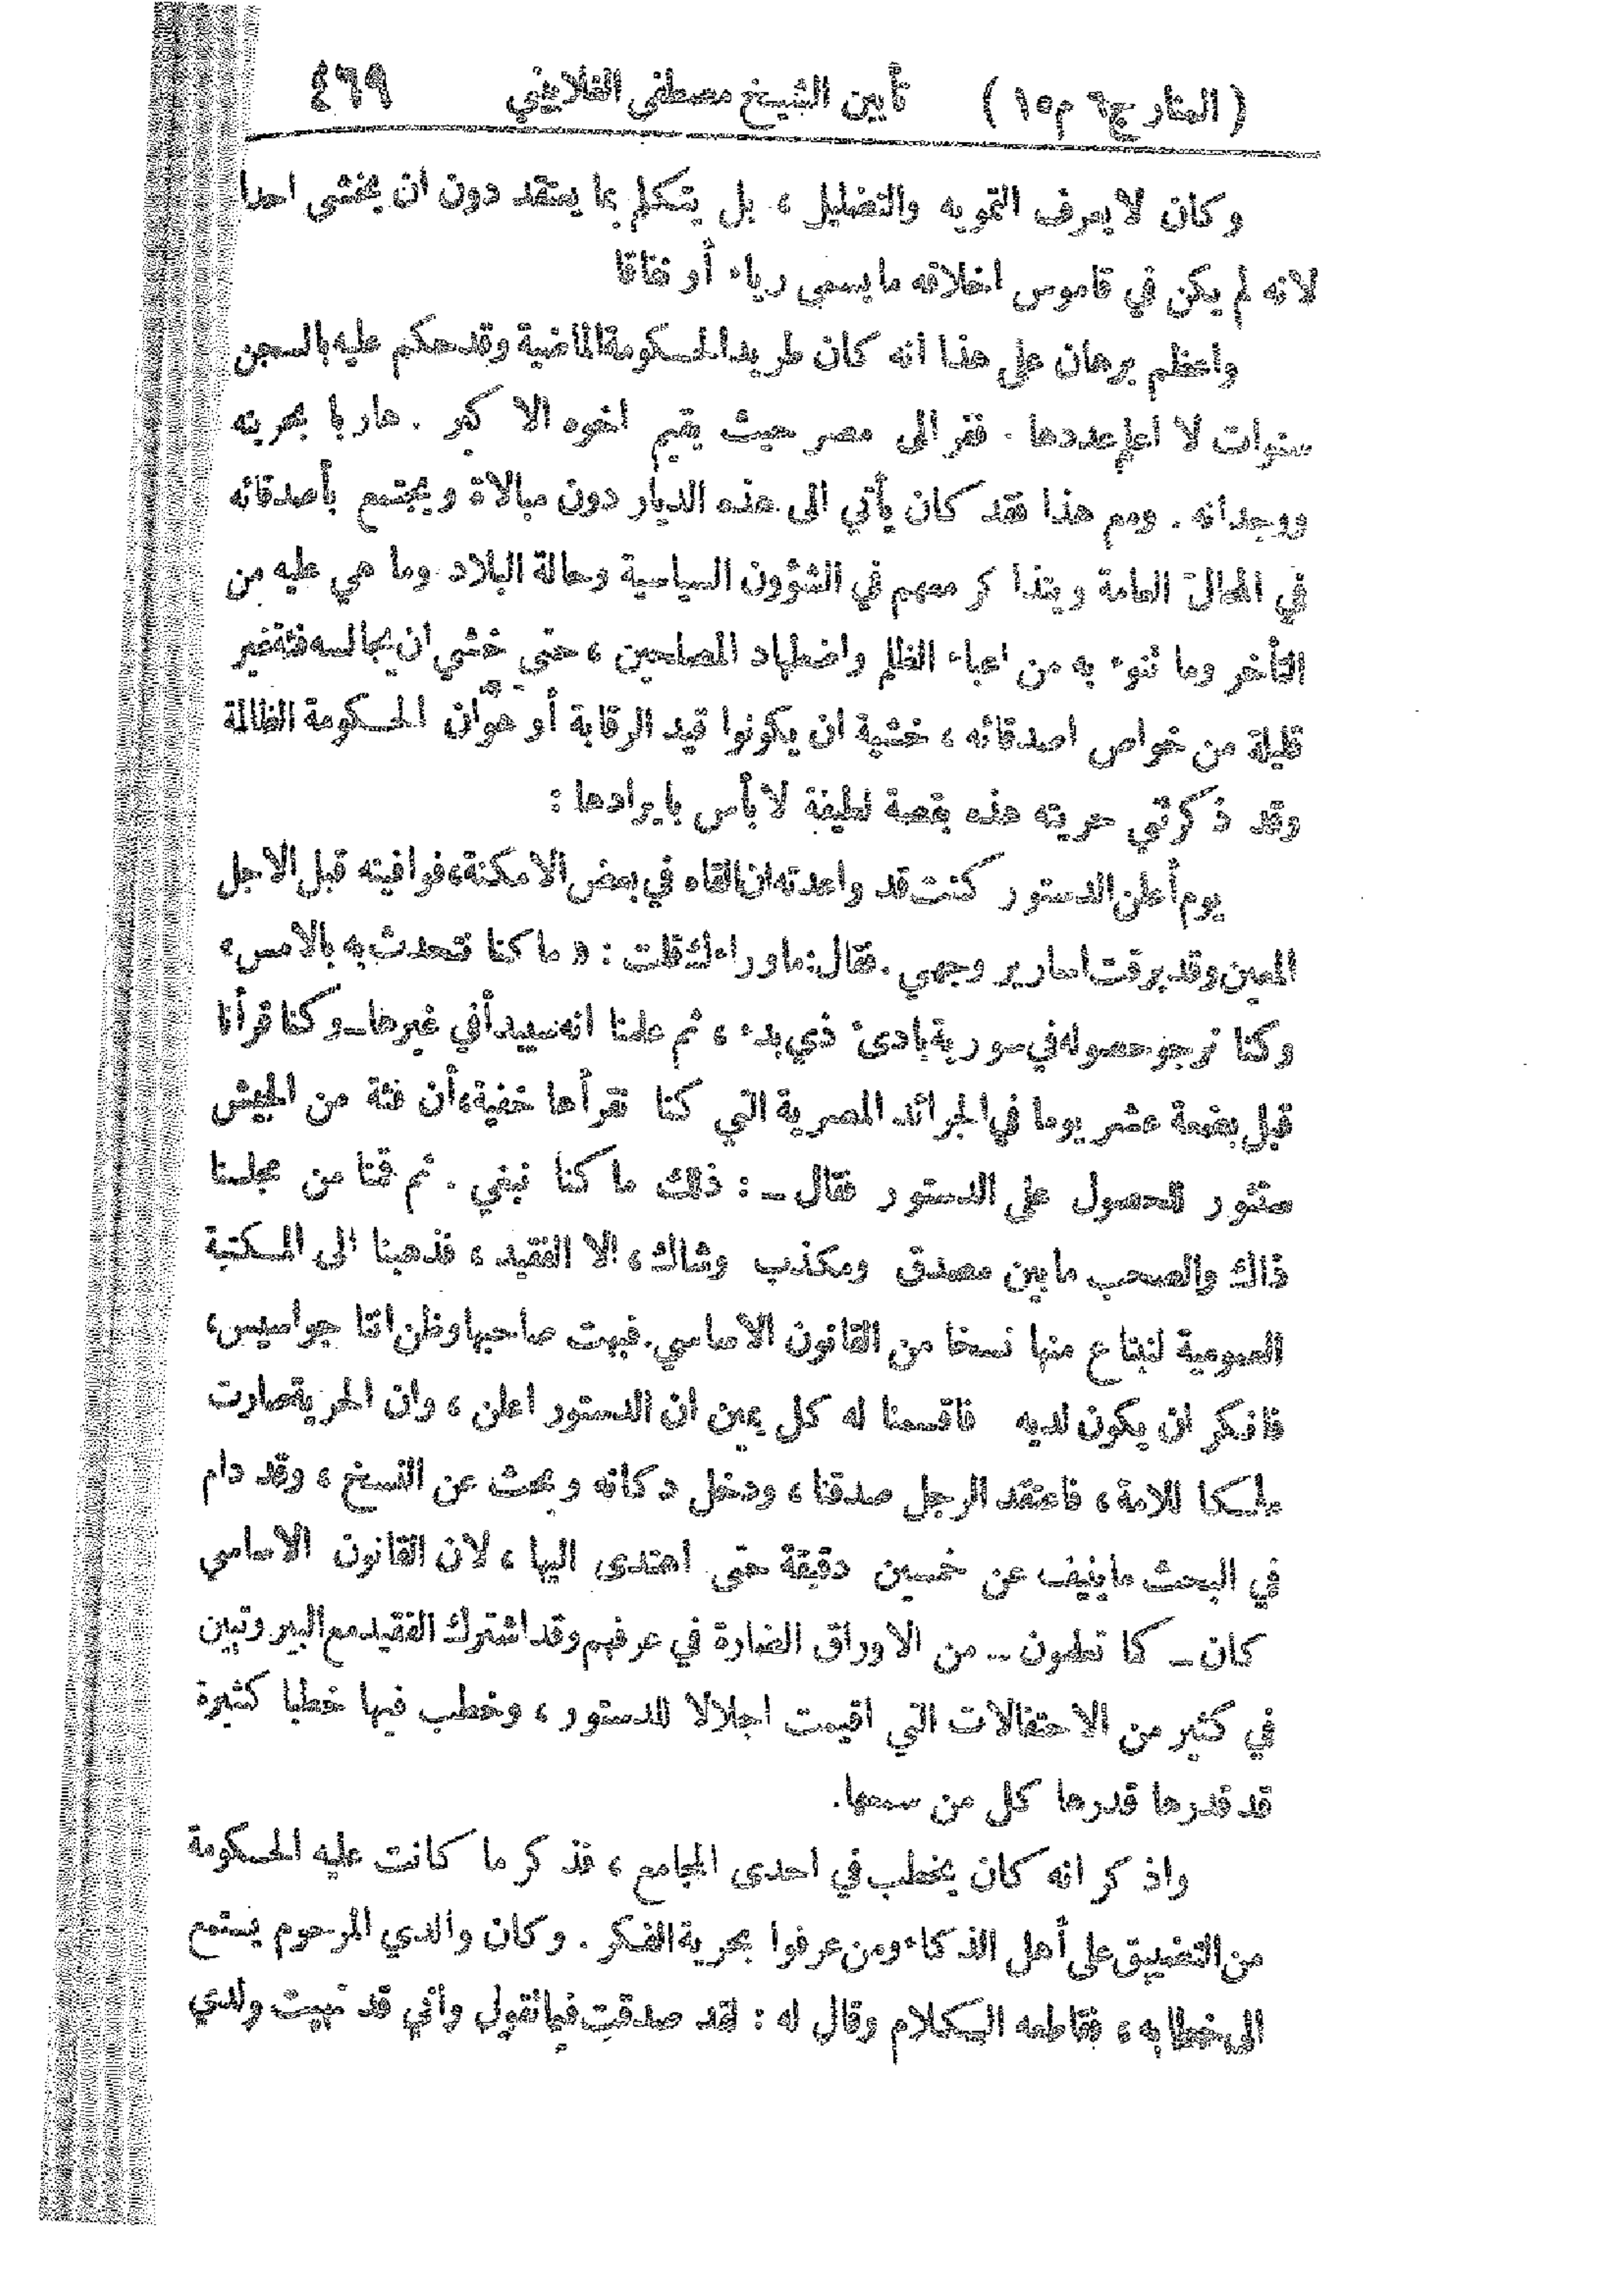 ( المنار ج٦ م١٥ ) تأبين الشيخ مصطفى الغلاييني ٤٦٩
وكان لا يعرف التمويه والتضليل ، بل يتكلم بما يعتقد دون ان يخشى احدا
لانه لم يكن في قاموس اخلاقه ما يسمى رياء أو نفاقا
واعظم برهان على هذا انه كان طريد الحكومة الماضية وقد حكم عليه بالسجن
سنوات لا اعلم عددها . ففر الى مصر حيث يقيم اخوه الا كبر . هاربا بحريته
ووجدانه . ومع هذا فقد كان يأتي الى هذه الديار دون مبالاة ويجتمع بأصدقائه
في المحالّ العامة ويتذا كر معهم في الشؤون السياسية وحالة البلاد وما هي عليه من
التأخر وما تنوء به من اعباء الظلم واضطهاد المصلحين ، حتى خشي ان يجالسه فئة غير
قليلة من خواص اصدقائه ، خشية ان يكونوا قيد الرقابة أو هوان الحكومة الظالمة
وقد ذكرتني حريته هذه بقصة لطيفة لا بأس بايرادها :
يوم أعلن الدستور كنت قد واعدته ان القاه في بعض الامكنة، فوافيته قبل الاجل
المعين وقد برقت اسارير وجهي . فقال: ما وراءك قلت : « ما كنا نتحدث به بالامس»
وكنا نرجو حصوله في سورية بادئ ذي بدء ، ثم علمنا انه سيبدأ في غيرها ـ وكنا قرأنا
قبل بضعة عشر يوما في الجرائد المصرية التي كنا نقرأها خفية، أن فئة من الجيش
ستثور للحصول على الدستور فقال ـ : ذلك ما كنا نبغي . ثم قمنا من مجلسنا
ذاك والصحب ما بين مصدق ومكذب وشاك ، الا الفقيد ، فذهبنا الى المكتبة
العمومية لنبتاع منها نسخا من القانون الاساسي. فبهت صاحبها وظن اننا جواسيس ،
فانكر ان يكون لديه فاقسمنا له كل يمين ان الدستور اعلن ، وان الحرية صارت
ملكا للامة ، فاعتقد الرجل صدقنا ، ودخل دكانه وبحث عن النسخ ، وقد دام
في البحث ما ينيف عن خمسين دقيقة حتى اهتدى اليها ، لان القانون الاساسي
كان ـ كما تعلمون ـ من الاوراق الضارة في عرفهم وقد اشترك الفقيد مع البيروتيين
في كثير من الاحتفالات التي اقيمت اجلالا للدستور ، وخطب فيها خطبا كثيرة
قد قدرها قدرها كل من سمعها.
واذكر انه كان يخطب في احدى المجامع ، فذكر ما كانت عليه الحكومة
من التضييق على أهل الذكاء ومن عرفوا بحرية الفكر . وكان والدي المرحوم يستمع
الى خطابه ، فقاطعه الكلام وقال له : لقد صدقت فيما تقول واني قد نهيت ولدي